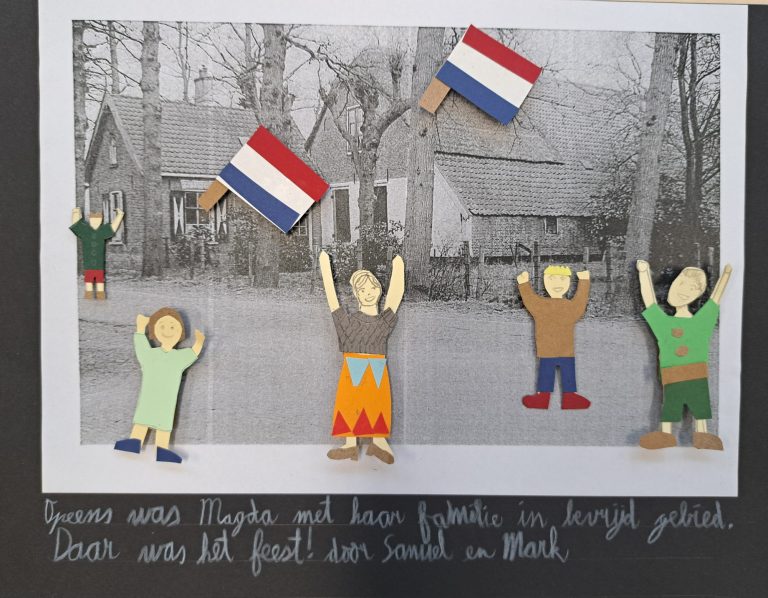 Opeens was Magda met haar familie in bevrijd gebied.
Daar was het feest! door Samuel en Mark